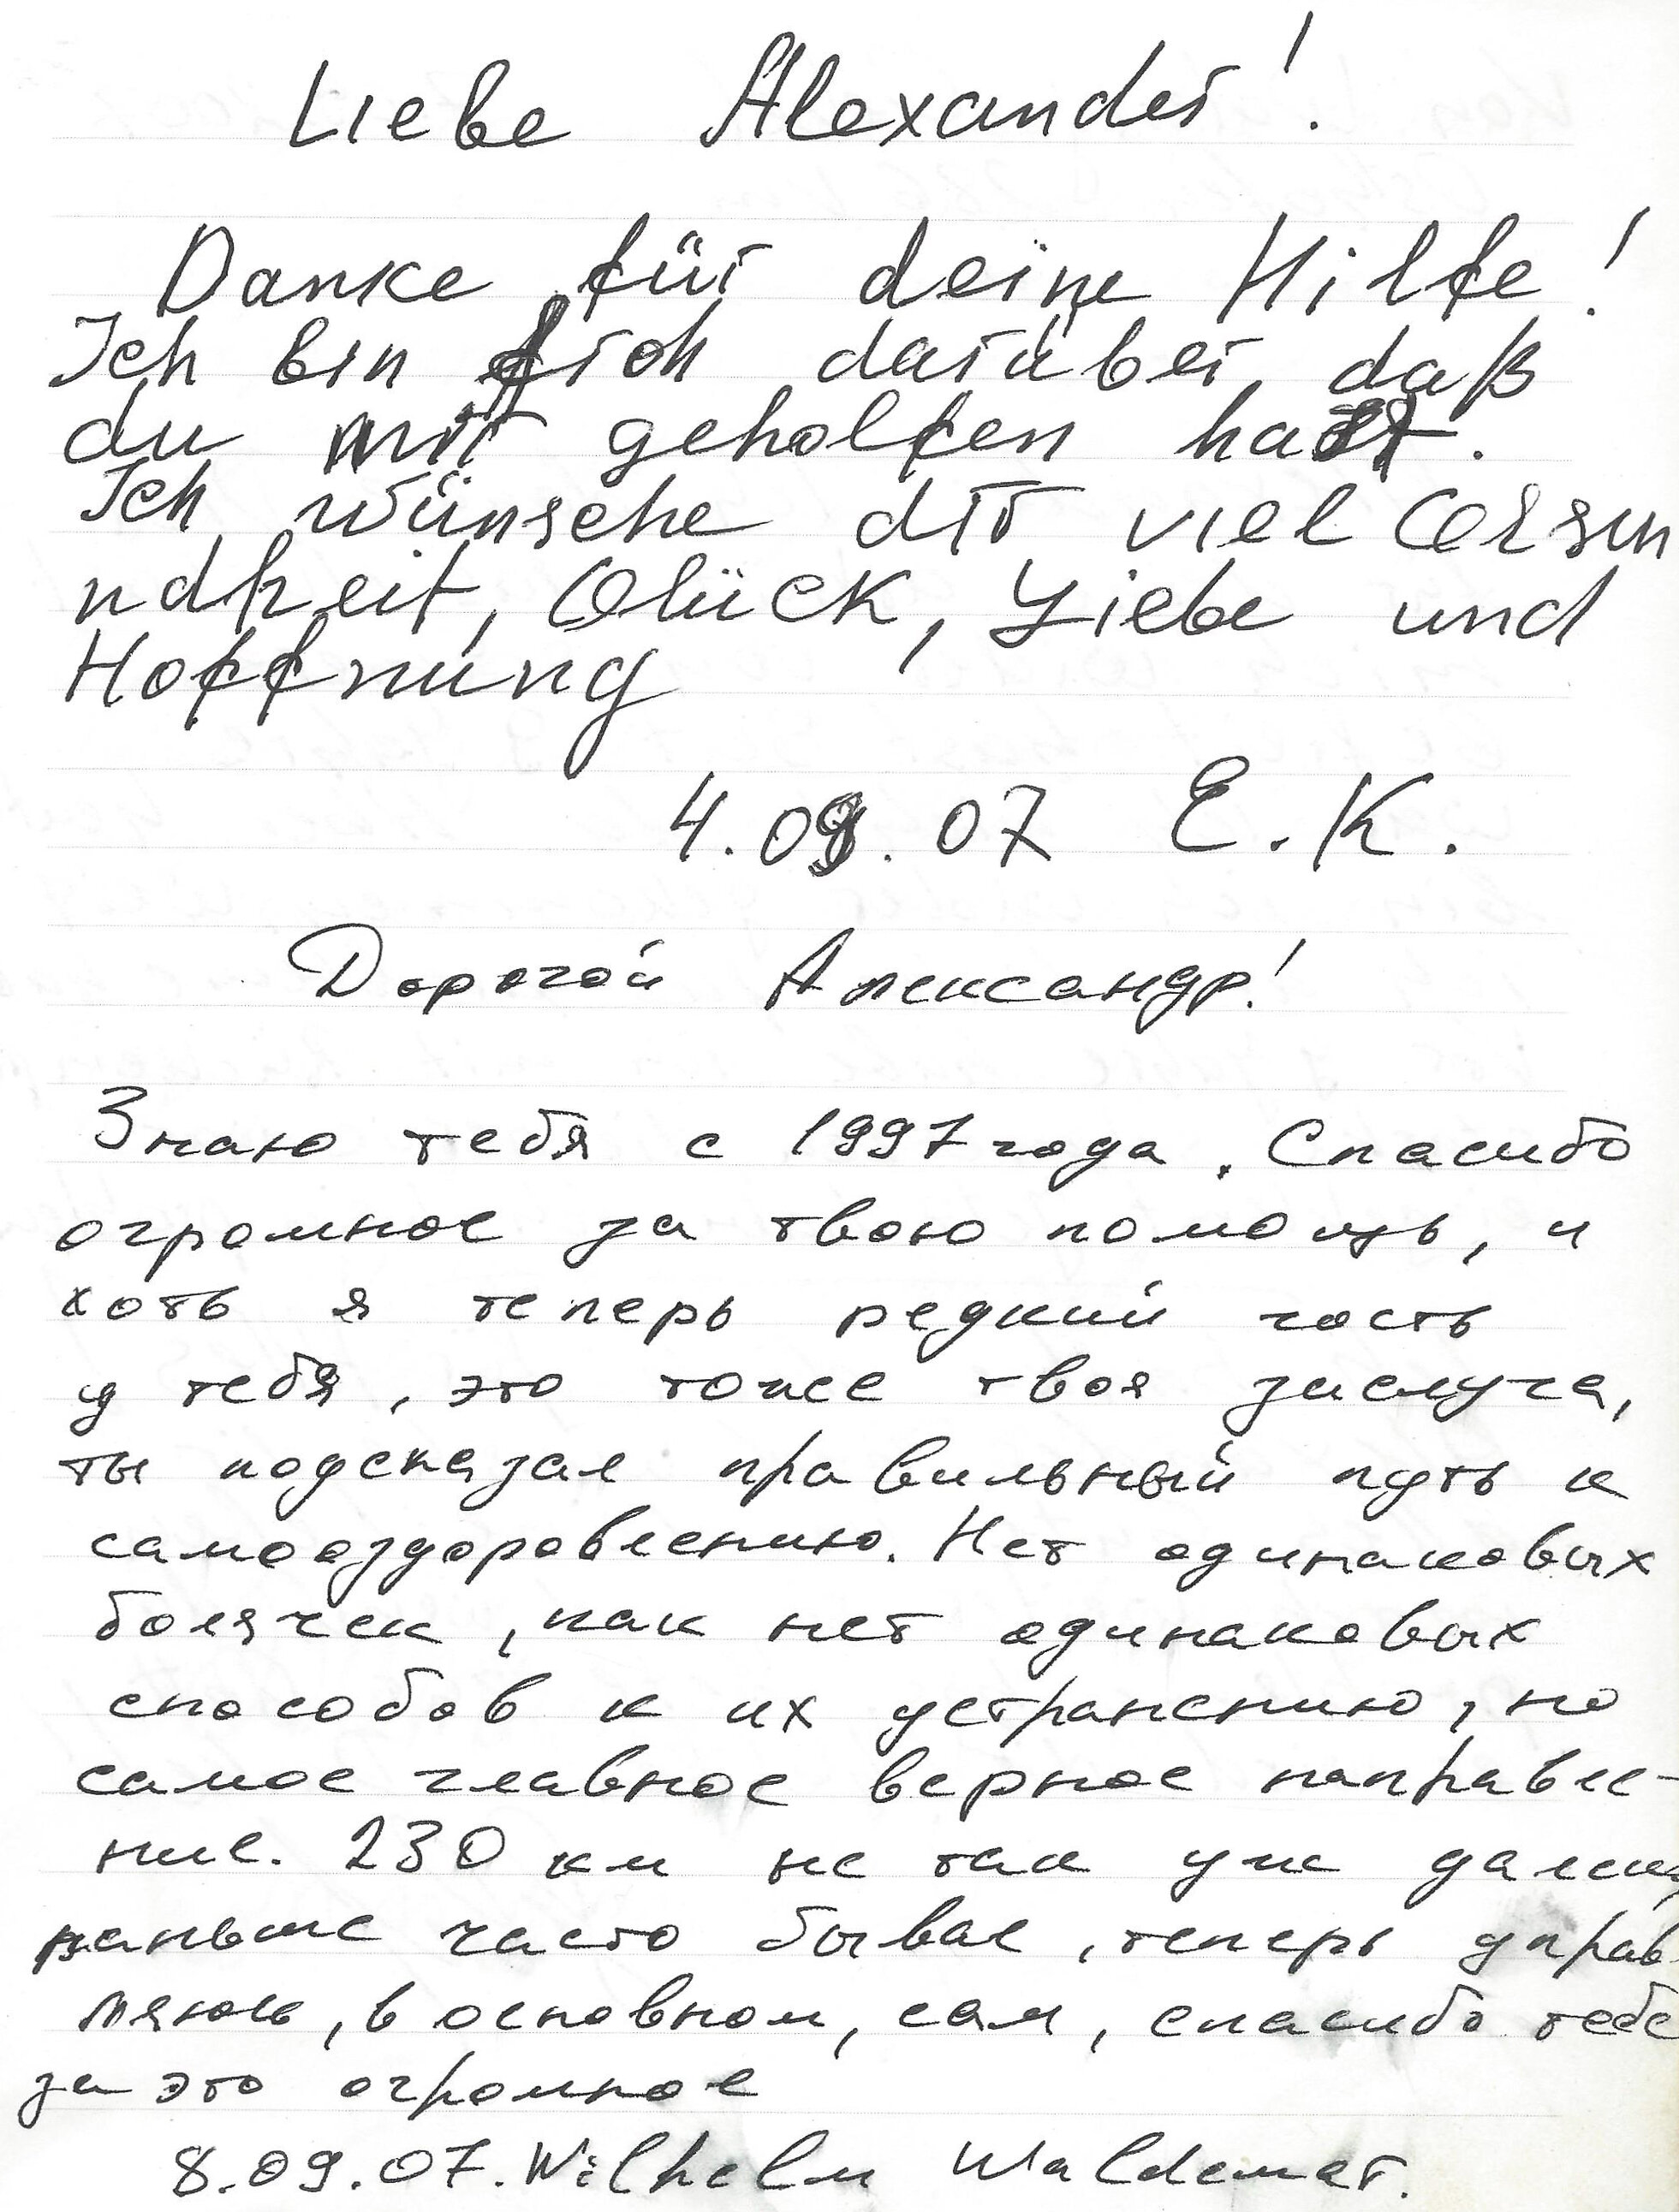 Liebe Alexander!
Danke für deine Hilfe!
Ich bin froh darüber, daß
du mir geholfen hast.
Ich wünsche dir viel Gesun
ndheit, Glück, Liebe und
Hoffnung
4.09.07 E.K.
Дорогой Александр!
Знаю тебя с 1997 года. Спасибо
огромное за твою помощь, и
хоть я теперь редкий гость
у тебя, это тоже твоя заслуга,
ты подсказал правильный путь к
самооздоровлению. Нет одинаковых
болячек, как нет одинаковых
способов к их устранению, но
самое главное верное направле-
ние. 230 км не так уж далеко,
раньше часто бывал, теперь справ
ляюсь, в основном, сам, спасибо тебе
за это огромное
8.09.07. Wilhelm Waldemar.